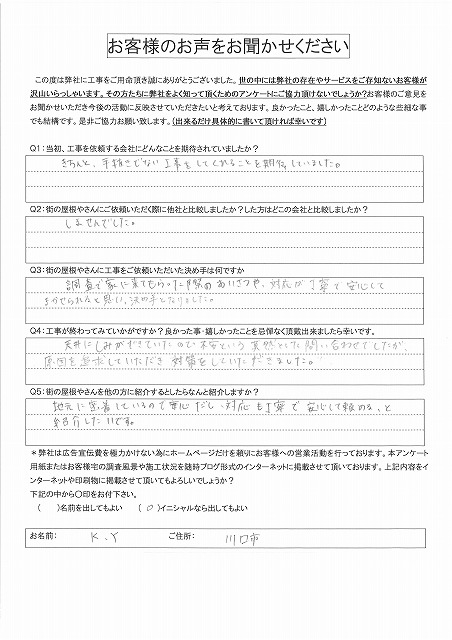 お客様のお声をお聞かせください
この度は弊社に工事をご用命頂き誠にありがとうございました。世の中には弊社の存在やサービスをご存知ないお客様が
沢山いらっしゃいます。その方たちに弊社をよく知って頂くためのアンケートにご協力頂けないでしょうか?お客様のご意見を
お聞かせいただき今後の活動に反映させていただきたいと考えております。良かったこと、嬉しかったことどのような些細な事
でも結構です。是非ご協力お願い致します。(出来るだけ具体的に書いて頂ければ幸いです)
Q1:当初、工事を依頼する会社にどんなことを期待されていましたか?
きちんと、手抜きでない工事をしてくれることを期待していました。
Q2:街の屋根やさんにご依頼いただく際に他社と比較しましたか?した方はどこの会社と比較しましたか?
しませんでした。
Q3:街の屋根やさんに工事をご依頼いただいた決め手は何ですか
調査で家に来てもらった際のあいさつや、対応が丁寧で安心して
まかせられると思い、決め手となりました。
Q4:工事が終わってみていかがですか?良かった事・嬉しかったことを忌憚なく頂戴出来ましたら幸いです。
天井にしみができていたので不安という漠然とした問い合わせでしたが、
原因を追求していただき対策をしていただきました。
Q5:街の屋根やさんを他の方に紹介するとしたらなんと紹介しますか?
地元に密着しているので安心だし、対応も丁寧で安心して頼める、と
紹介したいです。
*弊社は広告宣伝費を極力かけない為にホームページだけを頼りにお客様への営業活動を行っております。本アンケート
用紙またはお客様宅の調査風景や施工状況を随時ブログ形式のインターネットに掲載させて頂いております。上記内容をイ
ンターネットや印刷物に掲載させて頂いてもよろしいでしょうか?
下記の中から〇印をお付下さい。
( )名前を出してもよい (○)イニシャルなら出してもよい
お名前: K.Y ご住所: 川口市